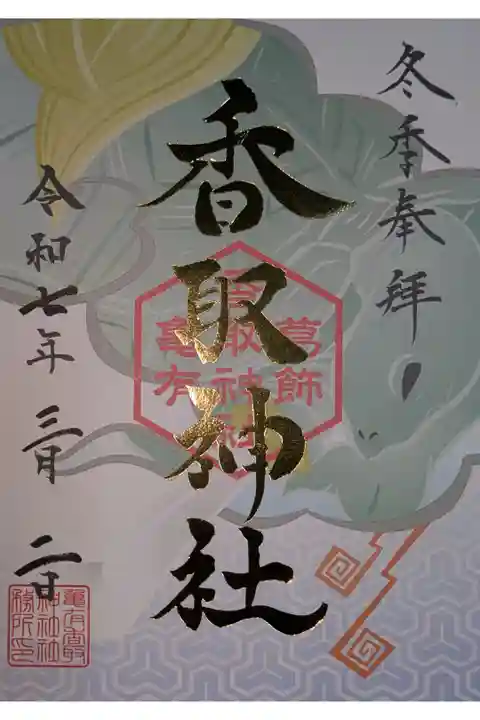 冬季奉拝
香取神社
葛飾
香取神社
亀有
令和七年三月二日
亀有香取神社社務所印